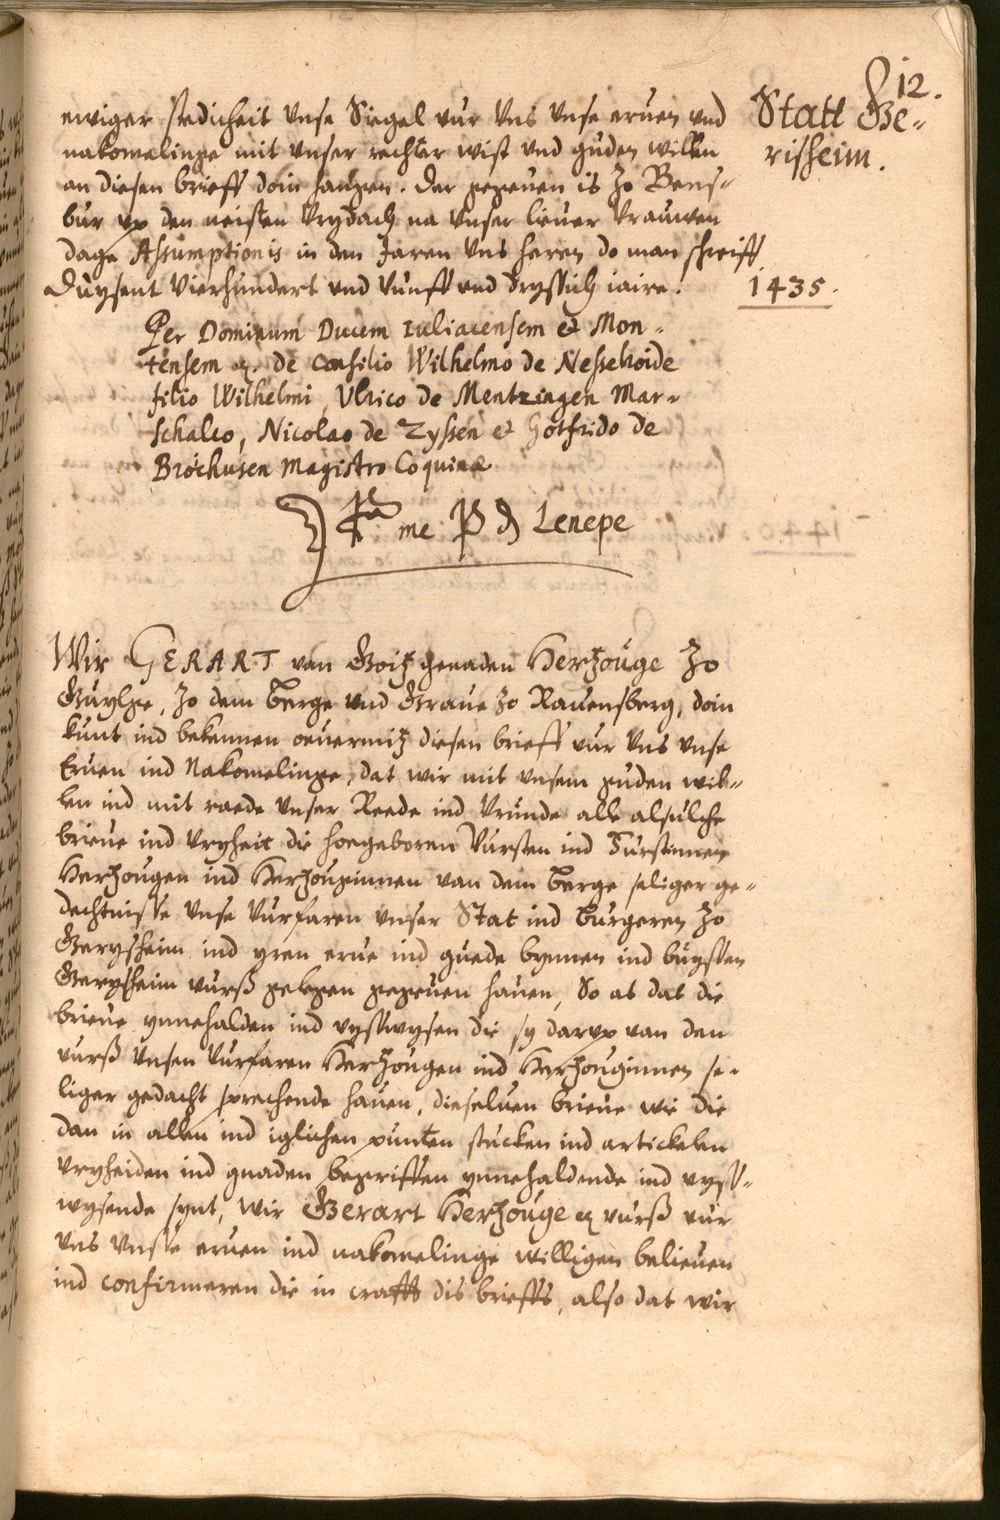 12.
Statt Ge-
risheim.
ewiger stedicheit Unse Siegel vur Uns Unse eruen und
nakomelinge mit Unser rechter wist und guden willen
an diesen brieff doin hangen. Der gegeuen is zo Bens-
bur up den neisten Vrydach na Unser lieuer Vrauwen
dage Assumptionis in den Jaren Uns heren do man schreiff
Duysent Vierhundert und Vunff und dryssich iaire.
1435.
Per Dominum Ducem Iuliacensem et Mon-
tensem etc. de Consilio Wilhelmo de Nesselroide
filio Wilhelmi, Ulrico de Mentzingen Mar-
schalco, Nicolao de Zyssen et Gotfrido de
Brochusen Magistro Coquinae
me P de Lenepe
Wir GERART van Goitz genaden Hertzouge Zo
Guylge, zo dem Berge und Graue zo Rauensberg, doin
kunt ind bekennen ouermitz diesen brieff vur Uns Unse
Eruen ind Nakomelinge, dat wir mit Unsem guden wil-
len ind mit raede Unser Reede ind Vrunde alle alsulche
brieue ind Vryheit die hoegeboren Vursten ind Furstinnen
Hertzougen ind Hertzouginnen van dem Berge seliger ge-
dechtnisse Unse Vurfaren Unser Stat ind Burgeren zo
Gerysheim ind yren erue ind guede bynnen ind buyssen
Gerysheim vurß gelegen gegeuen hauen, So as dat die
brieue ynnehalden ind uysswysen die sy darup van den
vurß Unsen Vurfaren Hertzougen ind Hertzouginnen se-
liger gedacht sprechende hauen, dieseluen brieue wie die
dan in allen ind iglichen punten stucken ind artickelen
Vryheiden ind gnaden begriffen ynnehaldende ind uyss-
wysende synt, Wir Gerart Hertzouge etc vurß vur
Uns Unsse eruen ind nakomelinge willigen belieuen
ind confirmeren die in crafft dis brieffs, also dat wir